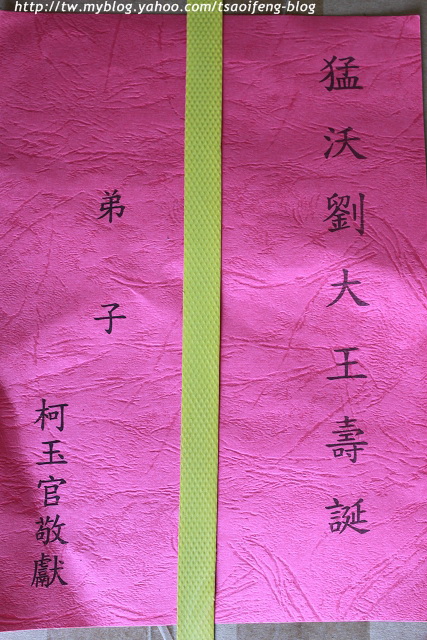 http://tw.myblog.yahoo.com/tsaoifeng-blog
猛沃劉大王壽誕
弟子
柯玉官敬獻